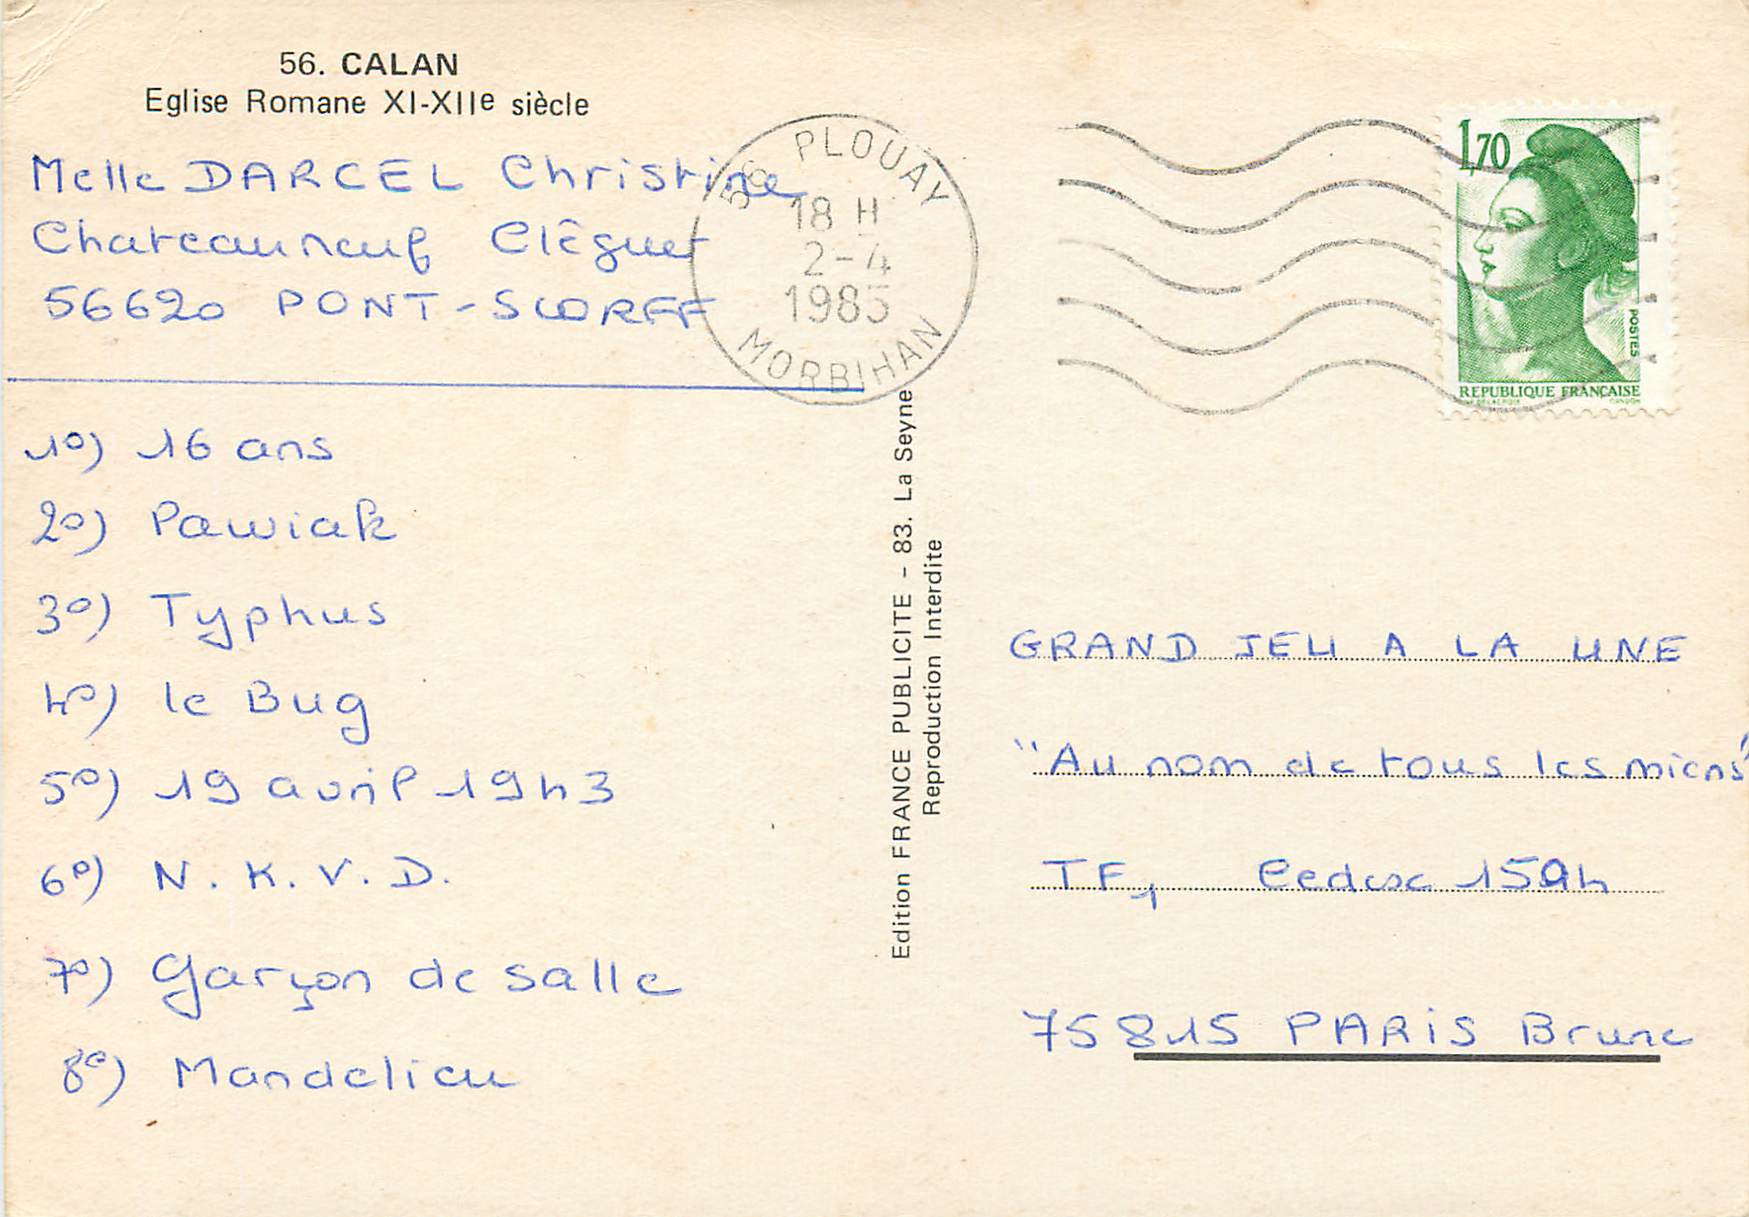 56. CALAN
Eglise Romane XI-XIIe siècle
Melle DARCEL Christine
Chateauneuf Clêguer
56620 PONT-SCORFF
1º) 16 ans
2º) Pawiak
3º) Typhus
4º) le Bug
5º) 19 avril 1943
6º) N.K.V.D.
7º) Garçon de salle
8º) Mandelieu
56 PLOUAY
18 H
2-4
1985
MORBIHAN
Edition FRANCE PUBLICITE - 83. La Seyne
Reproduction Interdite
1,70
POSTES
REPUBLIQUE FRANÇAISE
DELACROIX GANDON
GRAND JEU A LA UNE
"Au nom de tous les miens"
TF1 Cedex
75815 PARIS Brune